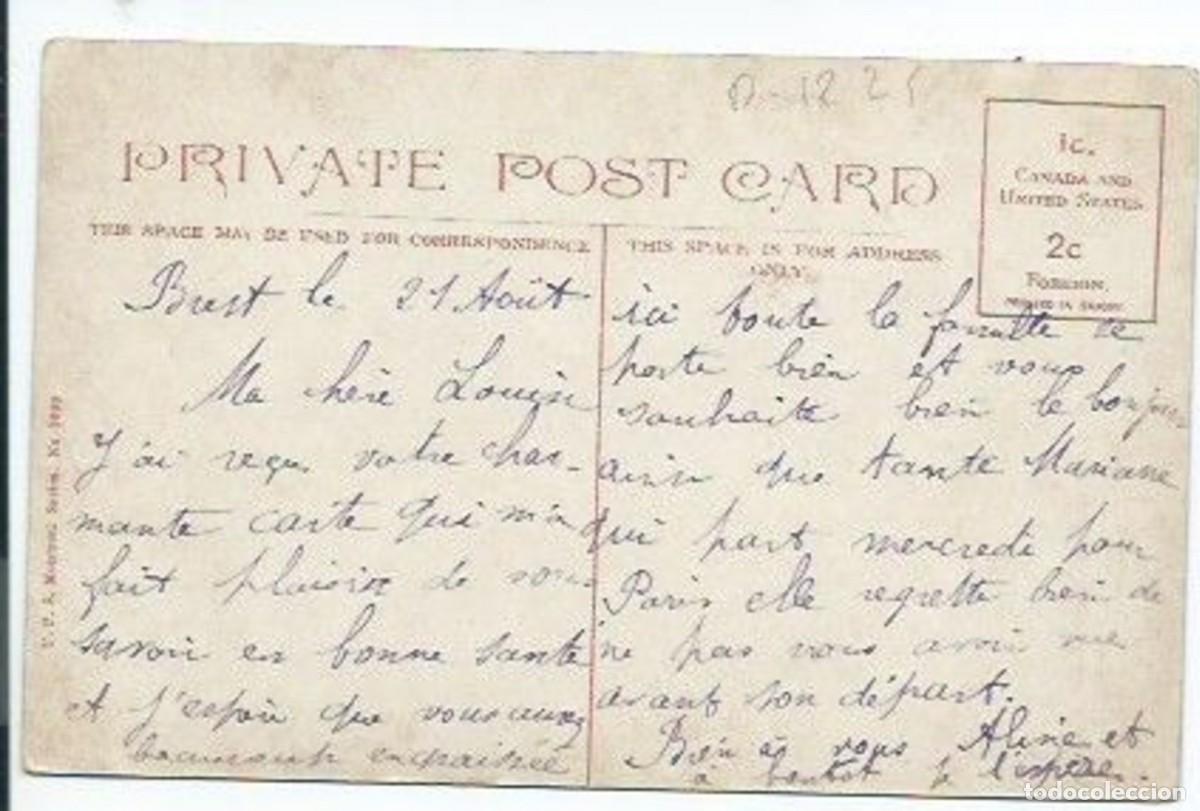 D-1225
PRIVATE POST CARD
1c.
CANADA AND
UNITED STATES
2c
FOREIGN.
PRINTED IN SAXONY
THIS SPACE MAY BE USED FOR CORRESPONDENCE
THIS SPACE IS FOR ADDRESS
ONLY.
Brest le 21 Août
Ma chère Louise
J'ai reçu votre char-
mante carte qui m'a
fait plaisir de vous
savoir en bonne santé
et j'espère que vous aurez
beaucoup engraissée
ici toute la famille se
porte bien et vous
souhaite bien le bonjour
ainsi que tante Mariane
qui part mercredi pour
Paris elle regrette bien de
ne pas vous avoir vue
avant son départ.
Bien à vous Aline et
à bientôt je l'espère.
Montreal Series. No
todocoleccion